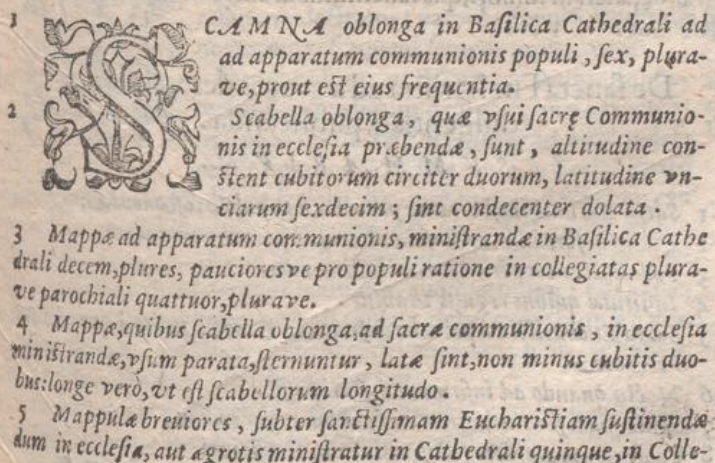 1 SCAMNA oblonga in Baſilica Cathedrali ad
ad apparatum communionis populi, ſex, plura-
ve, prout eſt eius frequentia.
2 Scabella oblonga, quæ vſui ſacrę Communio-
nis in eccleſia præbendæ, ſunt, altitudine con-
ſtent cubitorum circiter duorum, latitudine vn-
ciarum ſexdecim; ſint condecenter dolata.
3 Mappæ ad apparatum communionis, miniſtrandæ in Baſilica Cathe
drali decem, plures, paucioresve pro populi ratione in collegiatas plura-
ve parochiali quattuor, plurave.
4 Mappæ, quibus ſcabella oblonga, ad ſacræ communionis, in eccleſia
miniſtrandæ, vſum parata, ſternuntur, latæ ſint, non minus cubitis duo-
bus: longe verò, vt eſt ſcabellorum longitudo.
5 Mappulæ breuiores, ſubter ſanctiſſimam Euchariſtiam ſuſtinendæ
dum in eccleſia, aut ægrotis miniſtratur in Cathedrali quinque, in Colle-